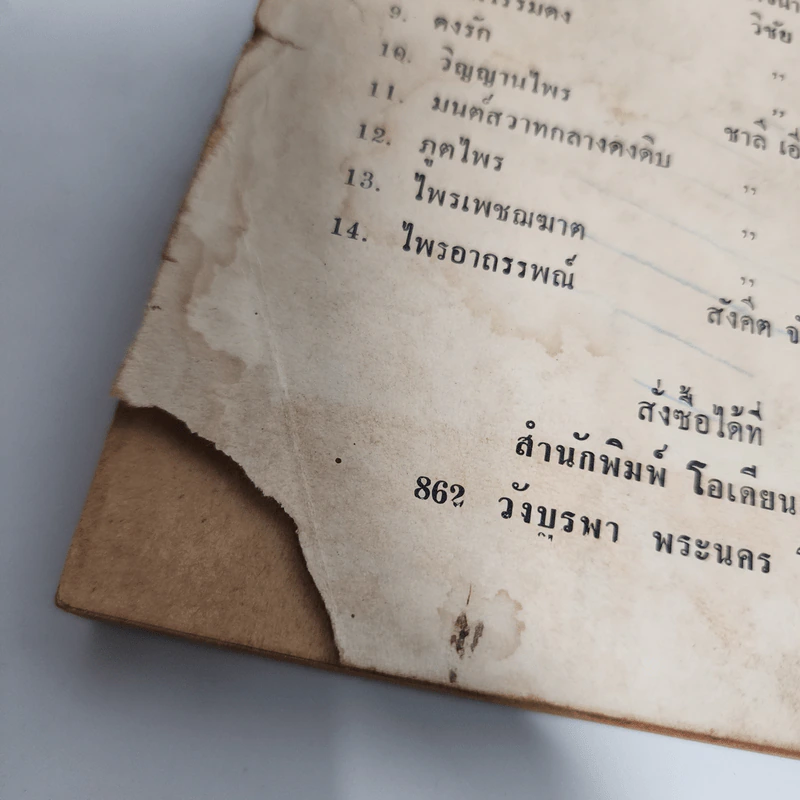 9. ดงรัก วิชัย
10. วิญญาณไพร ,,
11. มนต์สวาทกลางดงดิบ ,,
ชาลี เอี่
12. ภูตไพร ,,
13. ไพรเพชฌฆาต ,,
14. ไพรอาถรรพณ์ ,,
สังคีต
สั่งซื้อได้ที่
สำนักพิมพ์ โอเดียน
862 วังบูรพา พระนคร